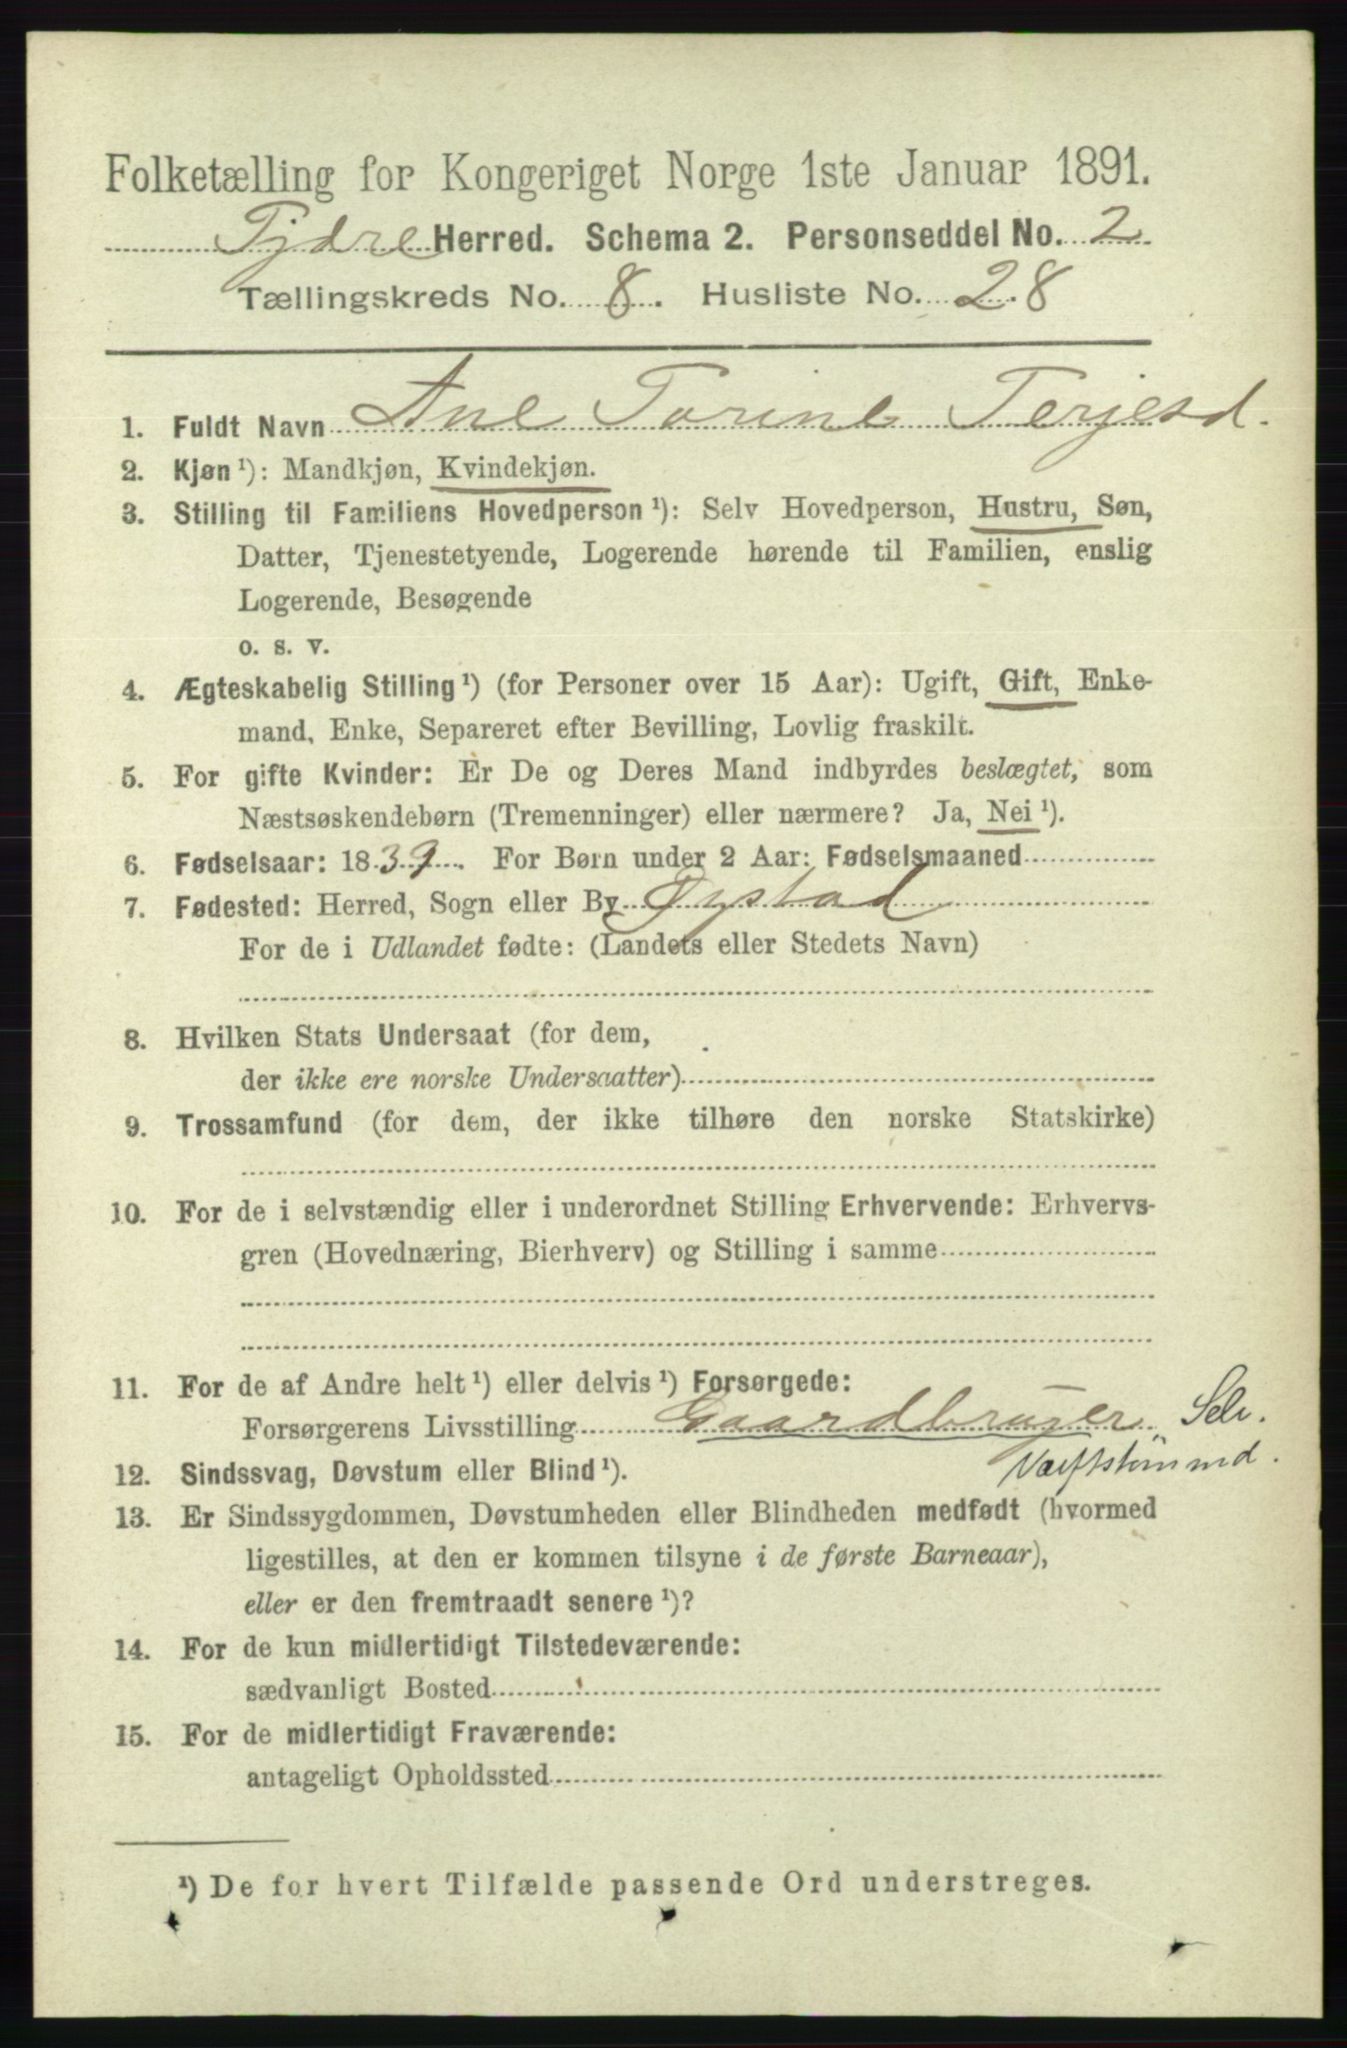 Folketælling for Kongeriget Norge 1ste Januar 1891.
Herred. Schema 2. Personseddel No. 2
Tællingskreds No. 8. Husliste No. 28
1. Fuldt Navn Ane Torine Terjesd.
2. Kjøn ¹): Mandkjøn, Kvindekjøn.
3. Stilling til Familiens Hovedperson ¹): Selv Hovedperson, Hustru, Søn,
Datter, Tjenestetyende, Logerende hørende til Familien, enslig
Logerende, Besøgende
o. s. v.
4. Ægteskabelig Stilling ¹) (for Personer over 15 Aar): Ugift, Gift, Enke-
mand, Enke, Separeret efter Bevilling, Lovlig fraskilt.
5. For gifte Kvinder: Er De og Deres Mand indbyrdes beslægtet, som
Næstsøskendebørn (Tremenninger) eller nærmere? Ja, Nei ¹).
6. Fødselsaar: 1839. For Børn under 2 Aar: Fødselsmaaned
7. Fødested: Herred, Sogn eller By Øystad
For de i Udlandet fødte: (Landets eller Stedets Navn)
8. Hvilken Stats Undersaat (for dem,
der ikke ere norske Undersaatter)
9. Trossamfund (for dem, der ikke tilhøre den norske Statskirke)
10. For de i selvstændig eller i underordnet Stilling Erhvervende: Erhvervs-
gren (Hovednæring, Bierhverv) og Stilling i samme
11. For de af Andre helt ¹) eller delvis ¹) Forsørgede:
Forsørgerens Livsstilling Gaardbruger, Selv.
12. Sindssvag, Døvstum eller Blind ¹).
13. Er Sindssygdommen, Døvstumheden eller Blindheden medfødt (hvormed
ligestilles, at den er kommen tilsyne i de første Barneaar),
eller er den fremtraadt senere ¹)?
14. For de kun midlertidigt Tilstedeværende:
sædvanligt Bosted
15. For de midlertidigt Fraværende:
antageligt Opholdssted
¹) De for hvert Tilfælde passende Ord understreges.